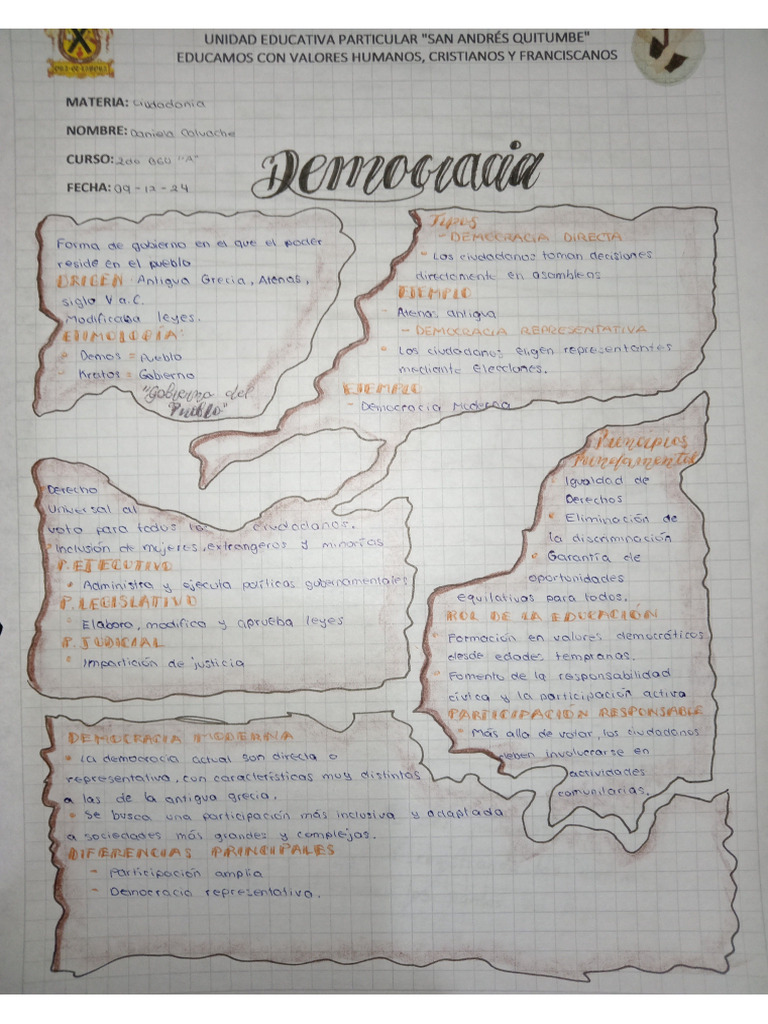 UNIDAD EDUCATIVA PARTICULAR "SAN ANDRÉS QUITUMBE"
EDUCAMOS CON VALORES HUMANOS, CRISTIANOS Y FRANCISCANOS
MATERIA: Ciudadania
NOMBRE: Daniela Calvache
CURSO: 2do BGU "A"
FECHA: 09-12-24
Democracia
Forma de gobierno en el que el poder
reside en el pueblo
ORIGEN Antigua Grecia, Atenas,
siglo V a.C.
Modificaba leyes.
ETIMOLOGÍA:
• Demos = Pueblo
• Kratos = Gobierno
"Gobierno del
Pueblo"
Tipos
- DEMOCRACIA DIRECTA
• Los ciudadanos toman decisiones
directamente en asambleas
EJEMPLO
- Atenas antigua
- DEMOCRACIA REPRESENTATIVA
• Los ciudadanos eligen representantes
mediante elecciones.
EJEMPLO
- Democracia Moderna
Derecho
Universal al
voto para todos los ciudadanos.
• Inclusión de mujeres, extrangeros y minorías
P. EJECUTIVO
• Administra y ejecula políticas gubernamentales
P. LEGISLATIVO
• Elabora, modifica y aprueba leyes
P. JUDICIAL
• Impartición de justicia
Principios
Fundamentales
• Igualdad de
Derechos
• Eliminación de
la discriminación
• Garantía de
oportunidades
equilativas para todos.
ROL DE LA EDUCACIÓN
• Formación en valores democráticos
desde edades tempranas.
• Fomento de la responsabilidad
cívica y la participación activa
PARTICIPACIÓN RESPONSABLE
• Más alla de votar, los ciudadanos
deben involucrarse en
actividades
comunitarias.
DEMOCRACIA MODERNA
• La democracia actual son directa o
representativa, con características muy distintas
a las de la antigua grecia.
• Se busca una participación más inclusiva y adaptada
a sociedades más grandes y complejas.
DIFERENCIAS PRINCIPALES
- Participación amplia
- Democracia representativa.